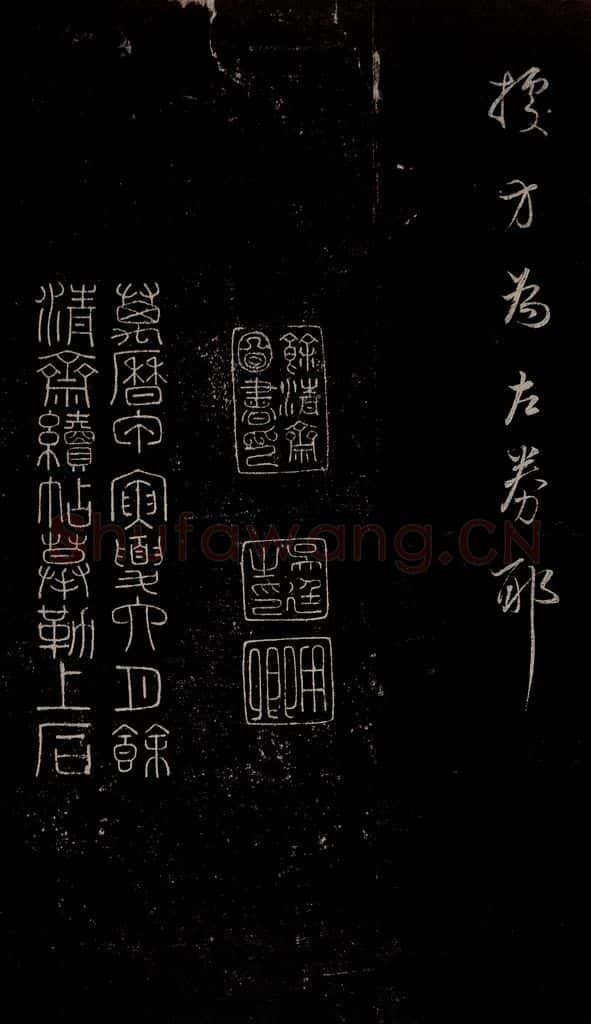 據方為左券耶
餘清齋
圖書印
吳廷
之印
用卿
萬曆甲寅夏六月餘
清齋續帖摹勒上石
Shufawang.CN